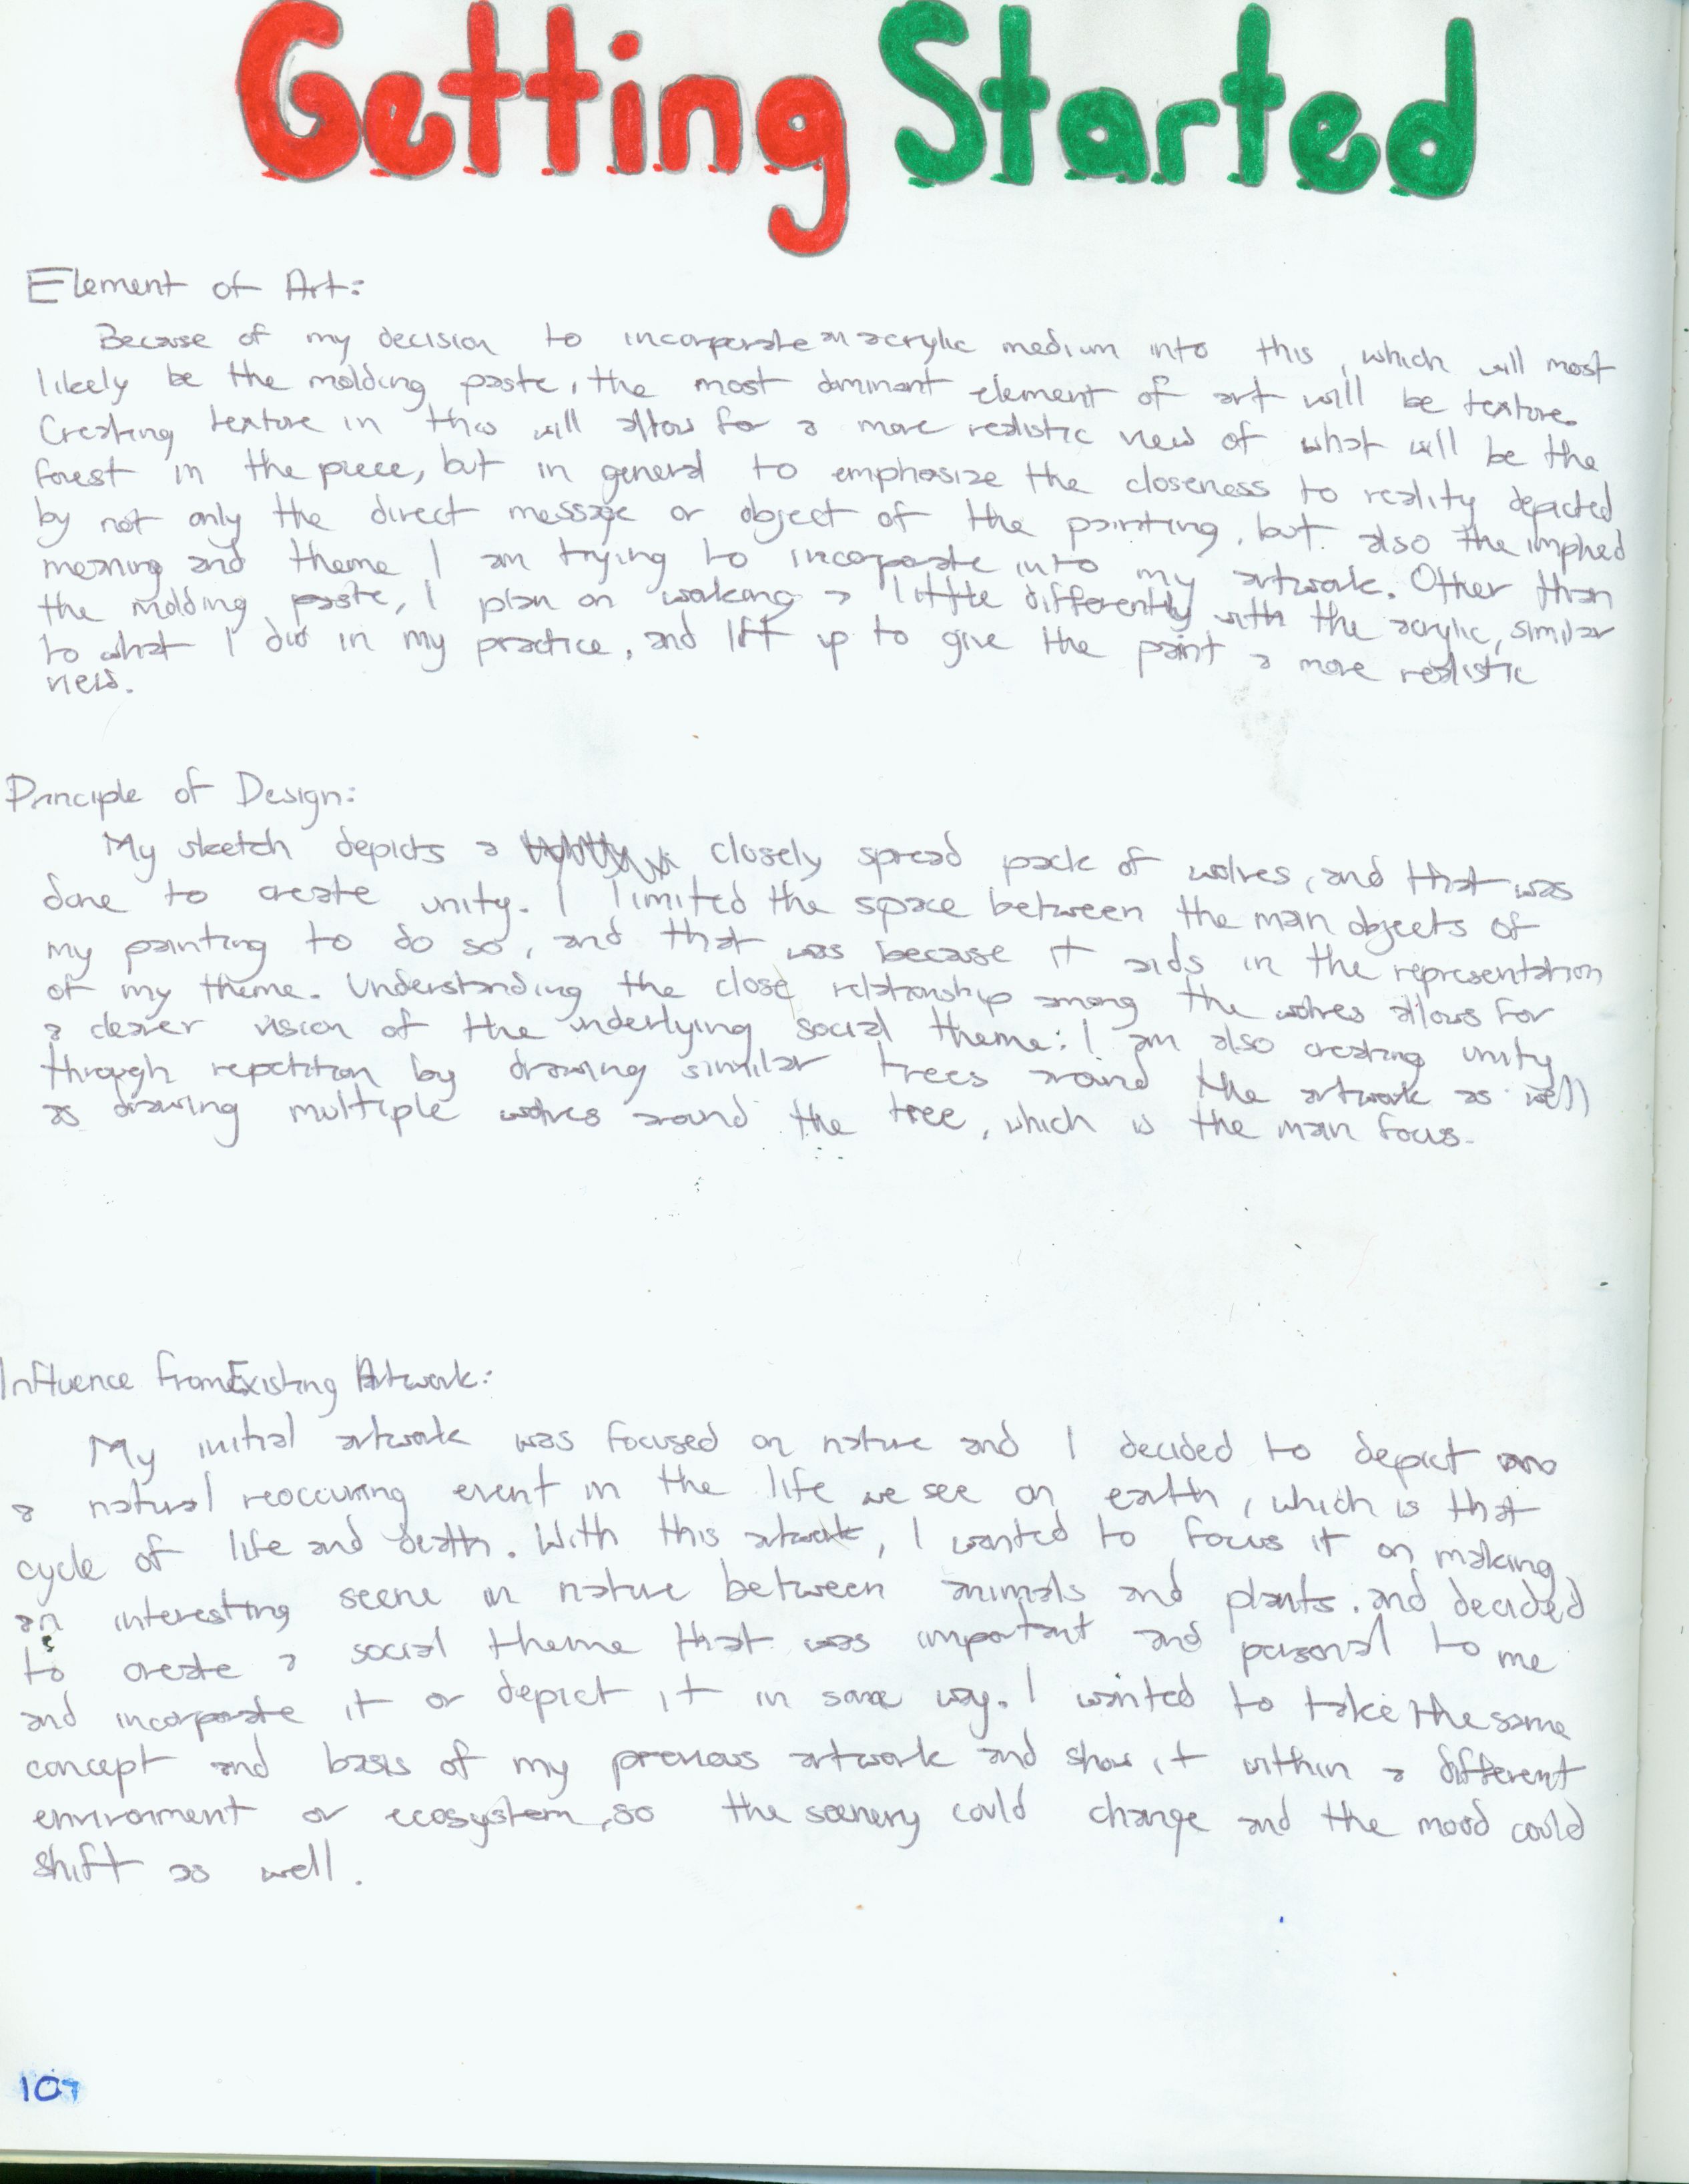 Getting Started
Element of Art:
Because of my decision to incorporate an acrylic medium into this, which will most
likely be the molding paste, the most dominant element of art will be texture.
Creating texture in this will allow for a more realistic view of what will be the
forest in the piece, but in general to emphasize the closeness to reality depicted
by not only the direct message or object of the painting, but also the implied
meaning and theme I am trying to incorporate into my artwork. Other than
the molding paste, I plan on working a little differently with the acrylic, similar
to what I did in my practice, and lift up to give the paint a more realistic
view.
Principle of Design:
My sketch depicts a closely spread pack of wolves, and that was
done to create unity. I limited the space between the main objects of
my painting to do so, and that was because it aids in the representation
of my theme. Understanding the close relationship among the wolves allows for
a clearer vision of the underlying social theme. I am also creating unity
through repetition by drawing similar trees around the artwork as well
as drawing multiple wolves around the tree, which is the main focus.
Influence from Existing Artwork:
My initial artwork was focused on nature and I decided to depict
a natural reoccuring event in the life we see on earth, which is that
cycle of life and death. With this artwork, I wanted to focus it on making
an interesting scene in nature between animals and plants, and decided
to create a social theme that was important and personal to me
and incorporate it or depict it in some way. I wanted to take the same
concept and basis of my previous artwork and show it within a different
environment or ecosystem, so the scenery could change and the mood could
shift as well.
107